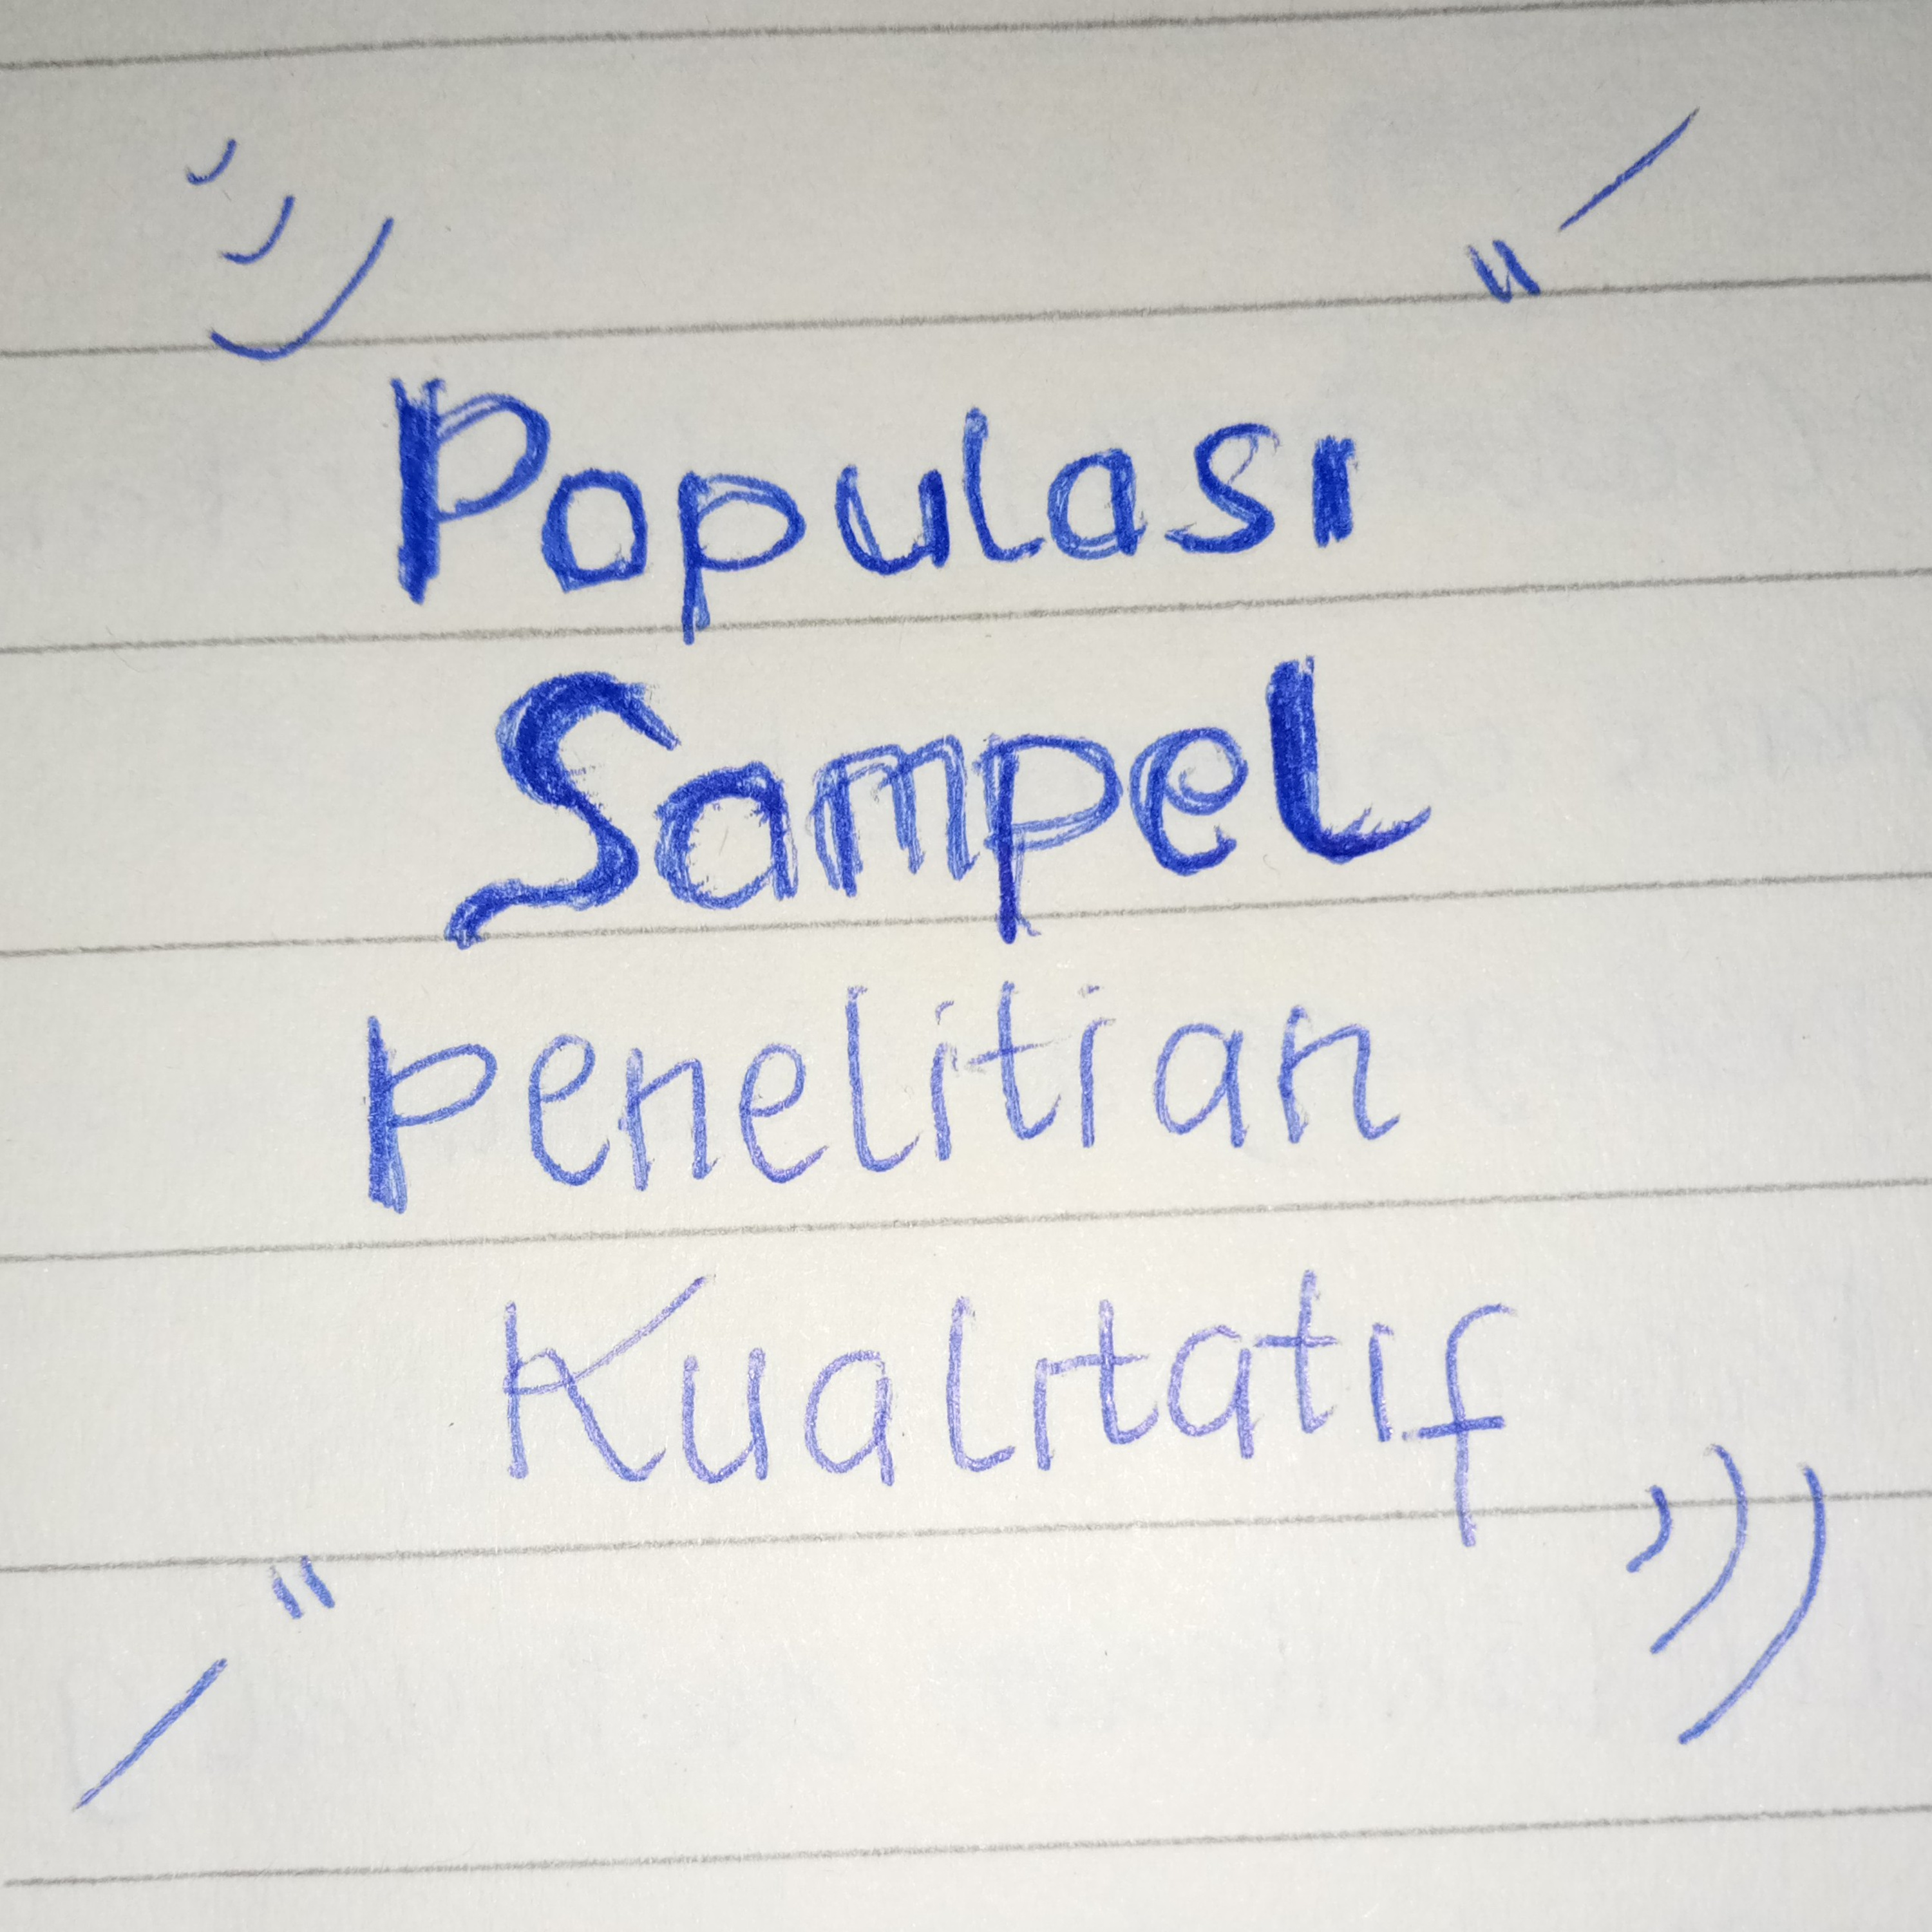 Populasi
Sampel
penelitian
Kualitatif